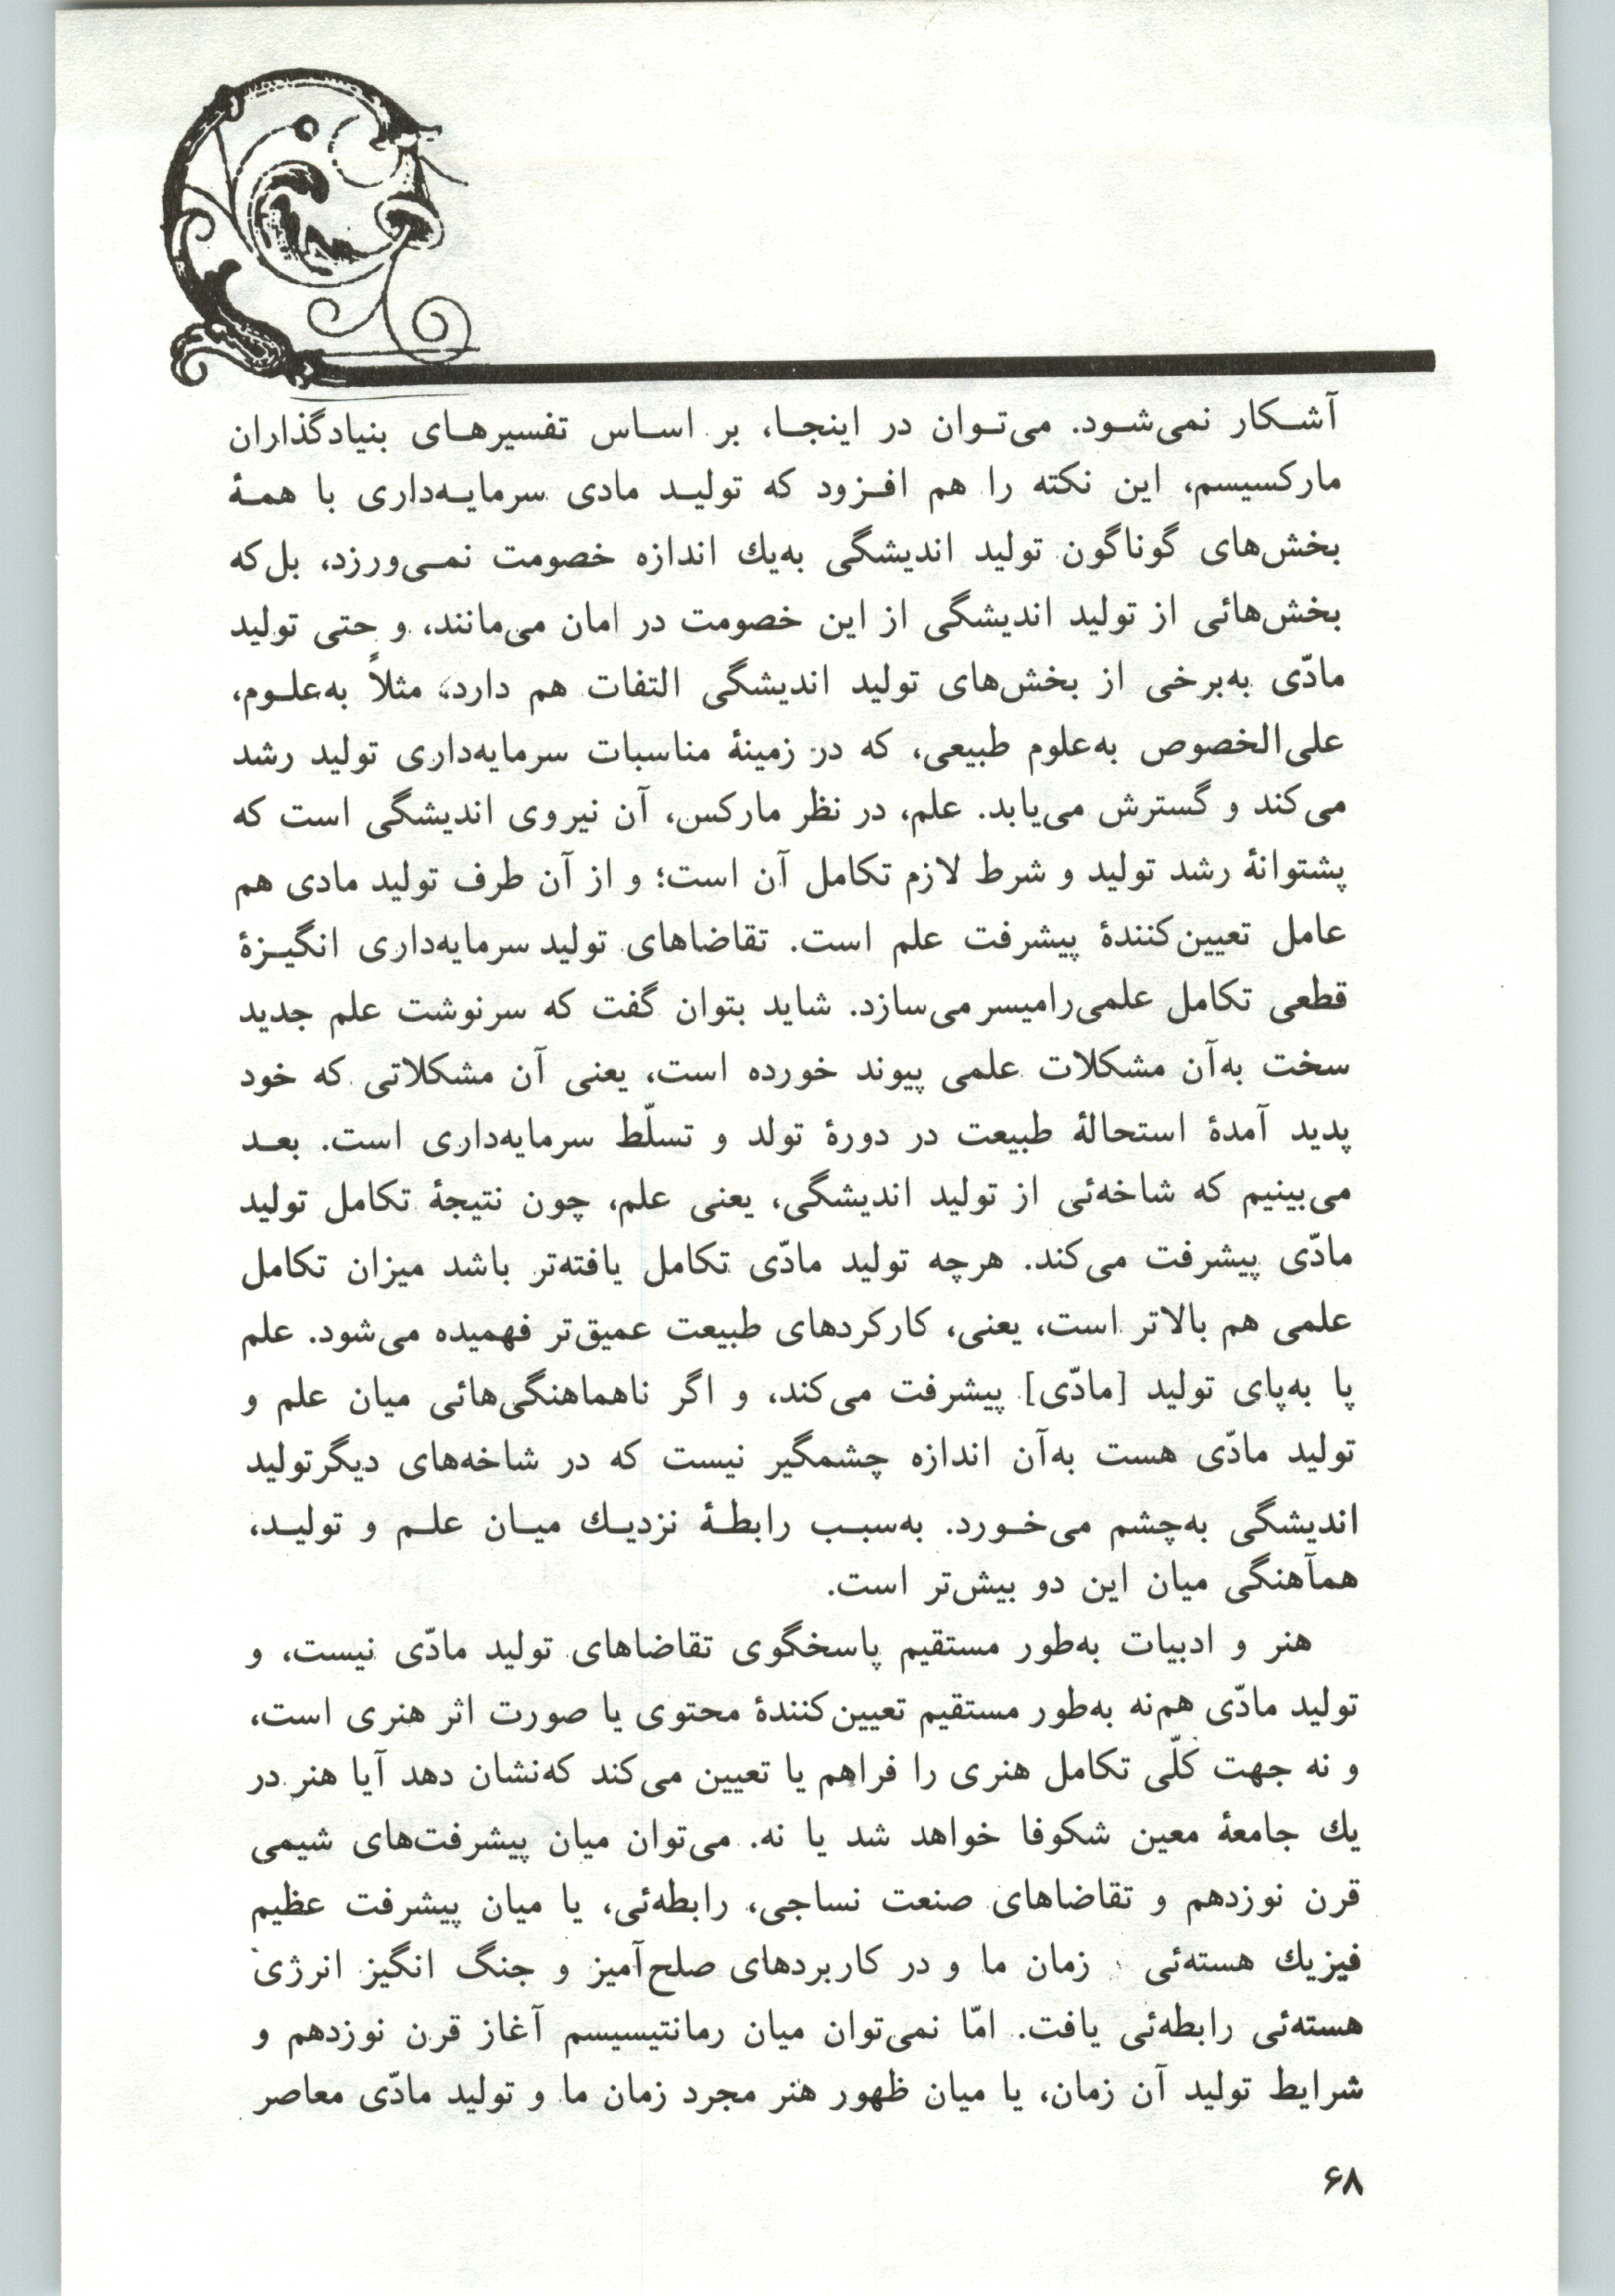 آشکار نمی‌شود. می‌توان در اینجا، بر اساس تفسیرهای بنیادگذاران
مارکسیسم، این نکته را هم افزود که تولید مادی سرمایه‌داری با همهٔ
بخش‌های گوناگون تولید اندیشگی به‌یك اندازه خصومت نمی‌ورزد، بل‌که
بخش‌هائی از تولید اندیشگی از این خصومت در امان می‌مانند، و حتی تولید
مادّی به‌برخی از بخش‌های تولید اندیشگی التفات هم دارد، مثلاً به‌علوم،
علی‌الخصوص به‌علوم طبیعی، که در زمینهٔ مناسبات سرمایه‌داری تولید رشد
می‌کند و گسترش می‌یابد. علم، در نظر مارکس، آن نیروی اندیشگی است که
پشتوانهٔ رشد تولید و شرط لازم تکامل آن است؛ و از آن طرف تولید مادی هم
عامل تعیین‌کنندهٔ پیشرفت علم است. تقاضاهای تولید سرمایه‌داری انگیزهٔ
قطعی تکامل علمی‌رامیسر می‌سازد. شاید بتوان گفت که سرنوشت علم جدید
سخت به‌آن مشکلات علمی پیوند خورده است، یعنی آن مشکلاتی که خود
پدید آمدهٔ استحالهٔ طبیعت در دورهٔ تولد و تسلّط سرمایه‌داری است. بعد
می‌بینیم که شاخه‌ئی از تولید اندیشگی، یعنی علم، چون نتیجهٔ تکامل تولید
مادّی پیشرفت می‌کند. هرچه تولید مادّی تکامل یافته‌تر باشد میزان تکامل
علمی هم بالاتر است، یعنی، کارکردهای طبیعت عمیق‌تر فهمیده می‌شود. علم
پا به‌پای تولید [مادّی] پیشرفت می‌کند، و اگر ناهماهنگی‌هائی میان علم و
تولید مادّی هست به‌آن اندازه چشمگیر نیست که در شاخه‌های دیگرتولید
اندیشگی به‌چشم می‌خورد. به‌سبب رابطهٔ نزدیك میان علم و تولید،
همآهنگی میان این دو بیش‌تر است.
هنر و ادبیات به‌طور مستقیم پاسخگوی تقاضاهای تولید مادّی نیست، و
تولید مادّی هم‌نه به‌طور مستقیم تعیین‌کنندهٔ محتوی یا صورت اثر هنری است،
و نه جهت کلّی تکامل هنری را فراهم یا تعیین می‌کند که‌نشان دهد آیا هنر در
یك جامعهٔ معین شکوفا خواهد شد یا نه. می‌توان میان پیشرفت‌های شیمی
قرن نوزدهم و تقاضاهای صنعت نساجی، رابطه‌ئی، یا میان پیشرفت عظیم
فیزیك هسته‌ئی زمان ما و در کاربردهای صلح‌آمیز و جنگ انگیز انرژی
هسته‌ئی رابطه‌ئی یافت. امّا نمی‌توان میان رمانتیسیسم آغاز قرن نوزدهم و
شرایط تولید آن زمان، یا میان ظهور هنر مجرد زمان ما و تولید مادّی معاصر
۶۸